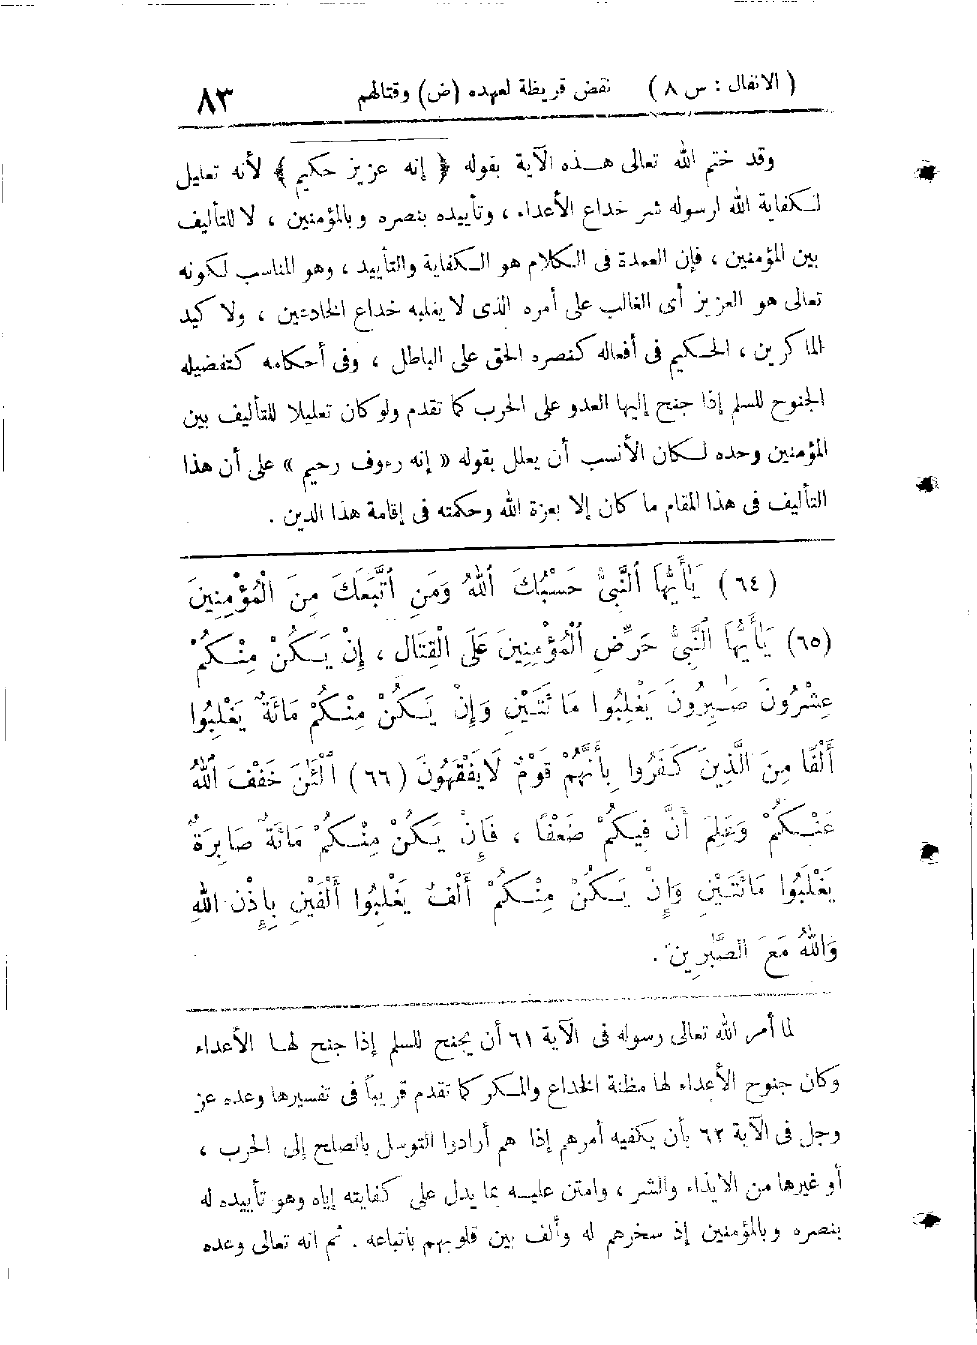 ( الانفال : س ٨ ) نقض قريظة لعهده (ض) وقتالهم ٨٣
وقد ختم الله تعالى هـذه الآية بقوله ﴿ إنه عزيز حكيم ﴾ لأنه تعليل
لـكفاية الله لرسوله شر خداع الأعداء ، وتأييده بنصره وبالمؤمنين ، لا للتأليف
بين المؤمنين ، فإن العمدة فى الـكلام هو الـكفاية والتأييد ، وهو المناسب لـكونه
تعالى هو العزيز أى الغالب على أمره الذى لا يغلبه خداع الخادعين ، ولا كيد
الماكرين ، الحـكيم فى أفعاله كنصره الحق على الباطل ، وفى أحكامه كتفضيله
الجنوح للسلم إذا جنح إليها العدو على الحرب كما تقدم ولو كان تعليلا للتأليف بين
المؤمنين وحده لـكان الأنسب أن يعلل بقوله « إنه رءوف رحيم » على أن هذا
التأليف فى هذا المقام ما كان إلا بعزة الله وحكمته فى إقامة هذا الدين .
(٦٤) يَٰأَيُّهَا ٱلنَّبِىُّ حَسْبُكَ ٱللهُ وَمَنِ ٱتَّبَعَكَ مِنَ الْمُؤْمِنِينَ
(٦٥) يَٰأَيُّهَا ٱلنَّبِىُّ حَرِّضِ ٱلْمُؤْمِنِينَ عَلَى الْقِتَالِ ، إِنْ يَـكُنْ مِنْـكُمْ
عِشْرُونَ صَٰبِرُونَ يَغْلِبُوا مَائَتَيْنِ وَإِنْ يَـكُنْ مِنْـكُمْ مَائَةٌ يَغْلِبُوا
أَلْفًا مِنَ الَّذِينَ كَفَرُوا بِأَنَّهُمْ قَوْمٌ لَا يَفْقَهُونَ (٦٦) ٱلْـَٰٔنَ خَفَّفَ ٱللهُ
عَنْـكُمْ وَعَلِمَ أَنَّ فِيكُمْ ضَعْفًا ، فَإِنْ يَـكُنْ مِنْـكُمْ مَائَةٌ صَابِرَةٌ
يَغْلِبُوا مَائَتَيْنِ وَإِنْ يَـكُنْ مِنْـكُمْ أَلْفٌ يَغْلِبُوا أَلْفَيْنِ بِإِذْنِ اللهِ
وَاللهُ مَعَ الصَّٰبِرِينَ .
لما أمر الله تعالى رسوله فى الآية ٦١ أن يجنح للسلم إذا جنح لهـا الأعداء
وكان جنوح الأعداء لها مظنة الخداع والمـكر كما تقدم قريباً فى تفسيرها وعده عز
وجل فى الآية ٦٢ بأن يكفيه أمرهم إذا هم أرادوا التوسل بالصلح إلى الحرب ،
أو غيرها من الايذاء والشر ، وامتن عليـه بما يدل على كفايته إياه وهو تأييده له
بنصره وبالمؤمنين إذ سخرهم له وألف بين قلوبهم باتباعه . ثم انه تعالى وعده